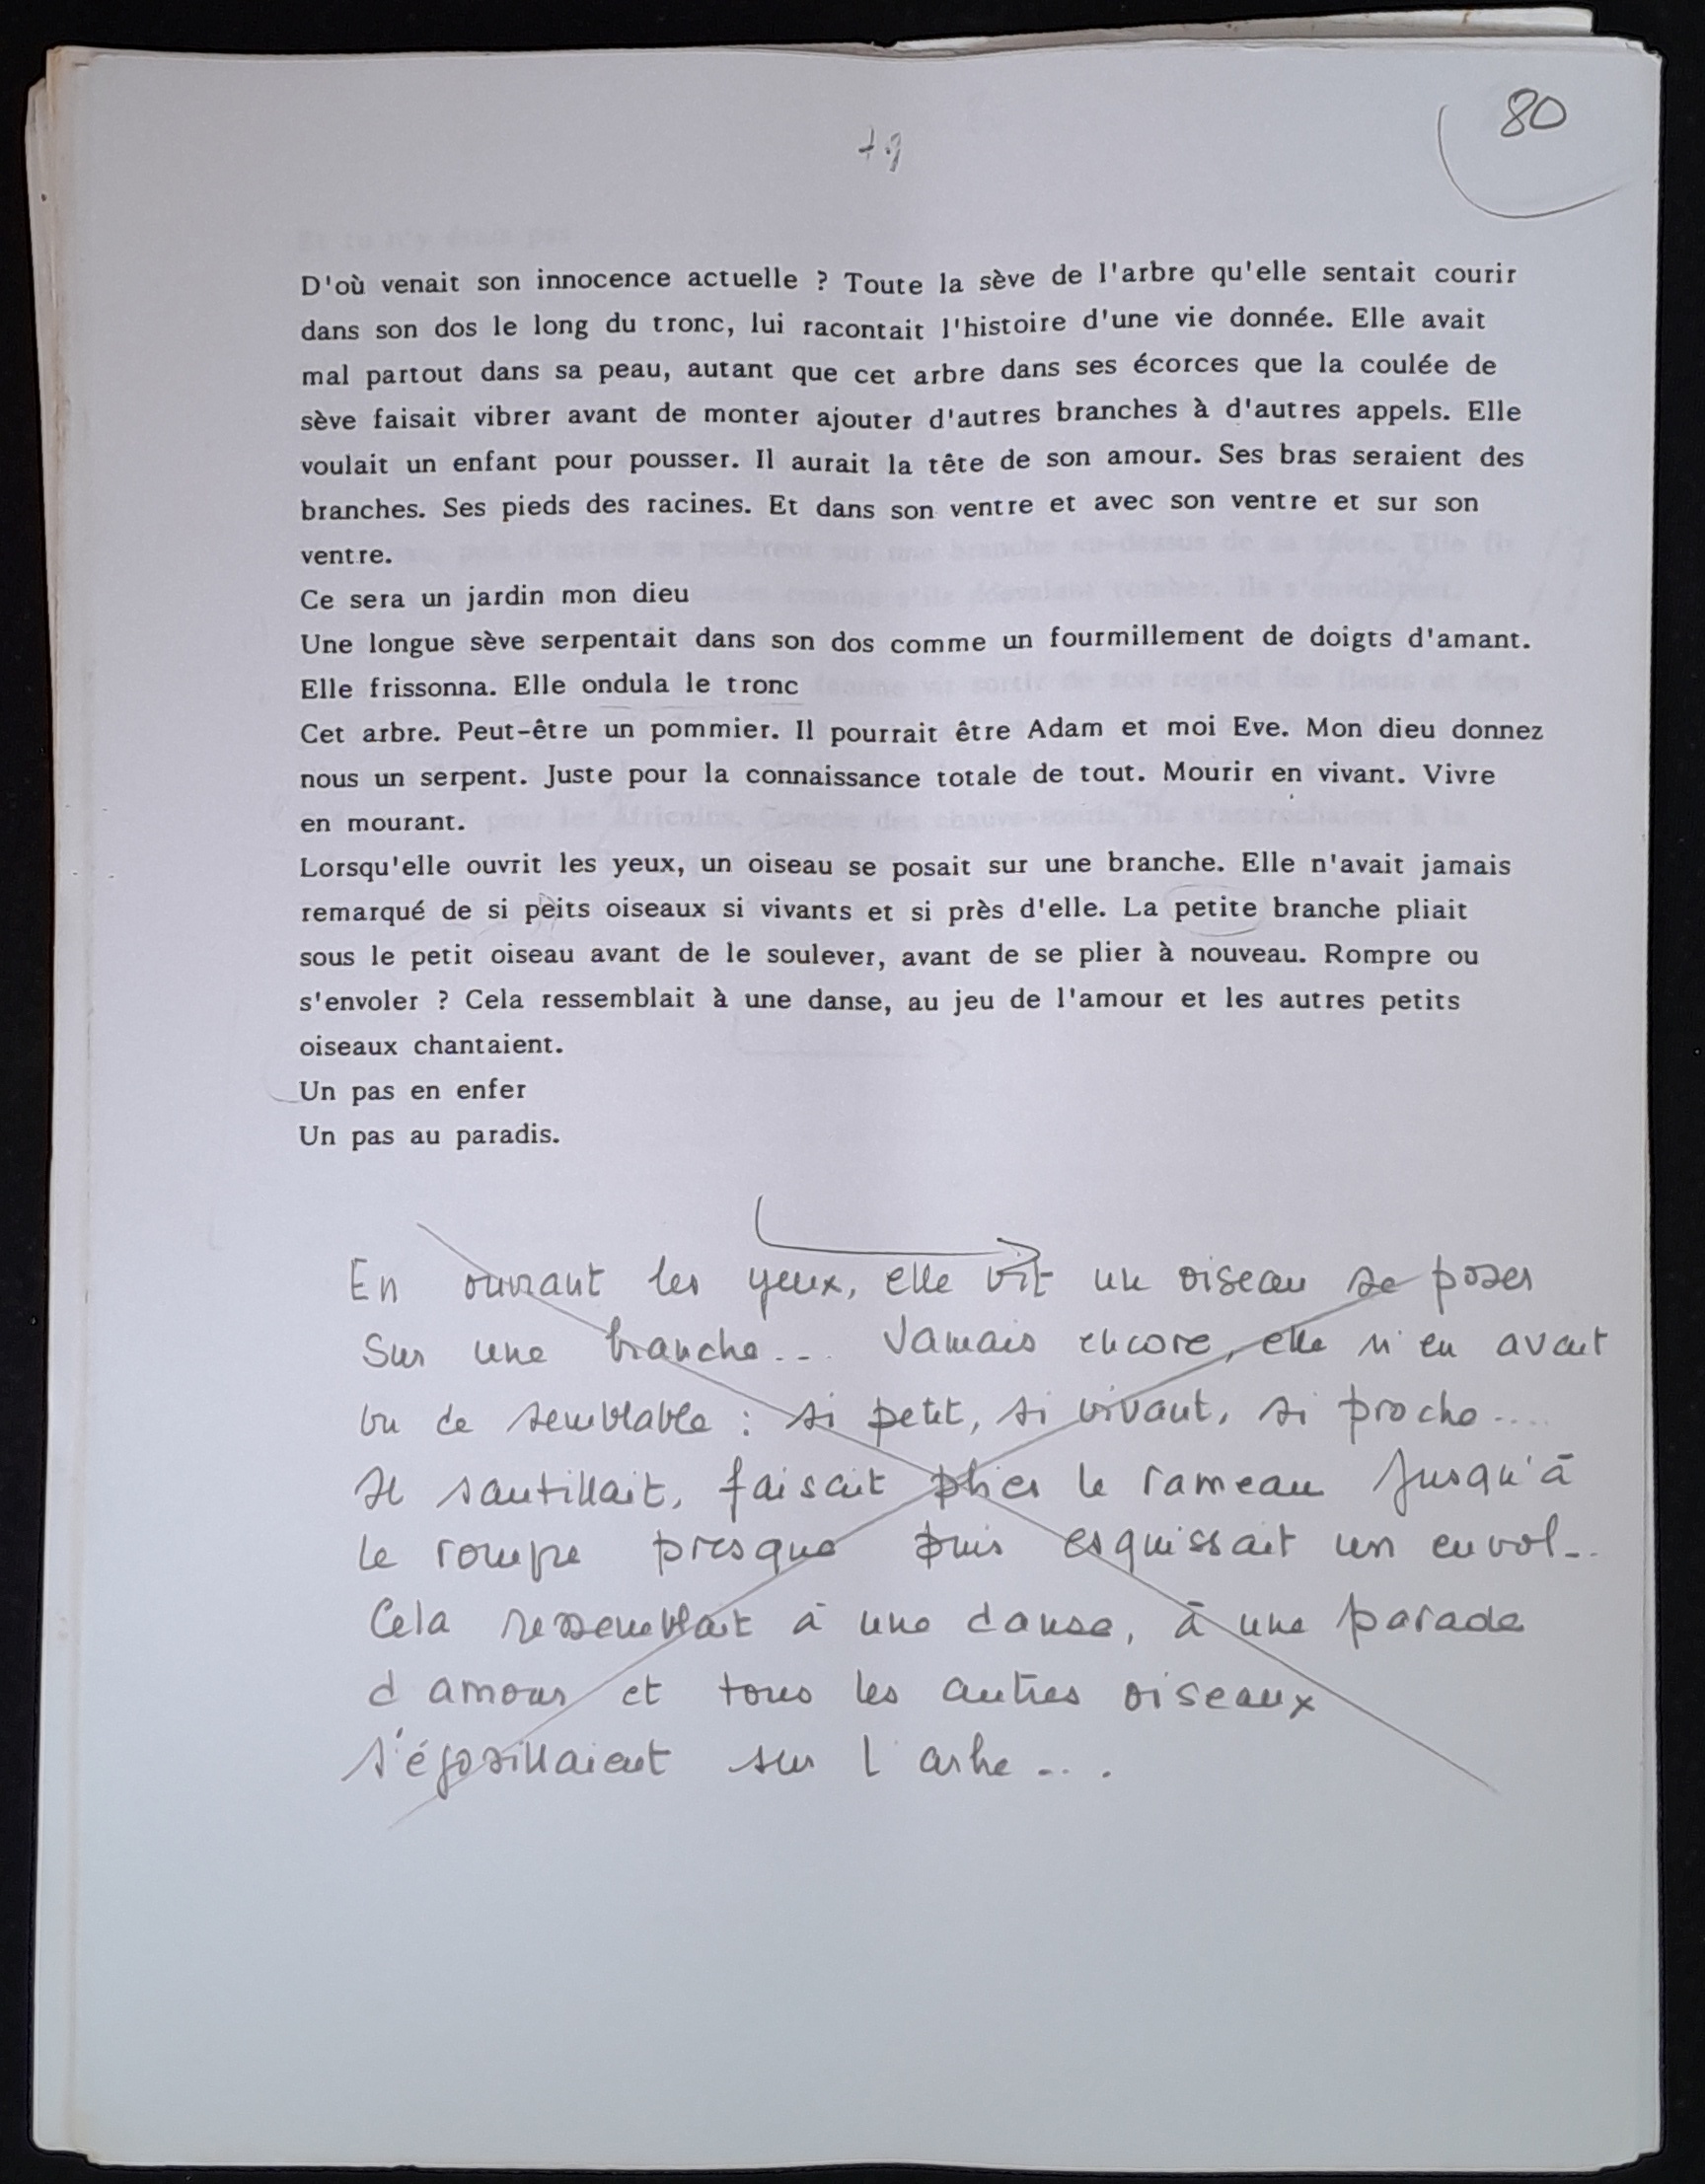 80
79
D'où venait son innocence actuelle ? Toute la sève de l'arbre qu'elle sentait courir
dans son dos le long du tronc, lui racontait l'histoire d'une vie donnée. Elle avait
mal partout dans sa peau, autant que cet arbre dans ses écorces que la coulée de
sève faisait vibrer avant de monter ajouter d'autres branches à d'autres appels. Elle
voulait un enfant pour pousser. Il aurait la tête de son amour. Ses bras seraient des
branches. Ses pieds des racines. Et dans son ventre et avec son ventre et sur son
ventre.
Ce sera un jardin mon dieu
Une longue sève serpentait dans son dos comme un fourmillement de doigts d'amant.
Elle frissonna. Elle ondula le tronc
Cet arbre. Peut-être un pommier. Il pourrait être Adam et moi Eve. Mon dieu donnez
nous un serpent. Juste pour la connaissance totale de tout. Mourir en vivant. Vivre
en mourant.
Lorsqu'elle ouvrit les yeux, un oiseau se posait sur une branche. Elle n'avait jamais
remarqué de si peits oiseaux si vivants et si près d'elle. La petite branche pliait
sous le petit oiseau avant de le soulever, avant de se plier à nouveau. Rompre ou
s'envoler ? Cela ressemblait à une danse, au jeu de l'amour et les autres petits
oiseaux chantaient.
Un pas en enfer
Un pas au paradis.
En ouvrant les yeux, elle vit un oiseau se poser
sur une branche... Jamais encore, elle n'en avait
vu de semblable : si petit, si vivant, si proche....
Il sautillait, faisait plier le rameau jusqu'à
le rompre presque puis esquissait un envol...
Cela ressemblait à une danse, à une parade
d'amour et tous les autres oiseaux
s'égosillaient sur l'arbre....